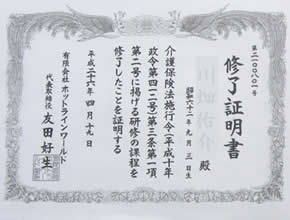 第二一〇八〇一号
修了証明書
川畑祐介
殿
昭和六十二年九月三日生
介護保険法施行令(平成十年
政令第四一二号)第三条第一項
第二号に掲げる研修の課程を
修了したことを証明する
平成二十六年四月十九日
有限会社ホットラインワールド
代表取締役 友田好生